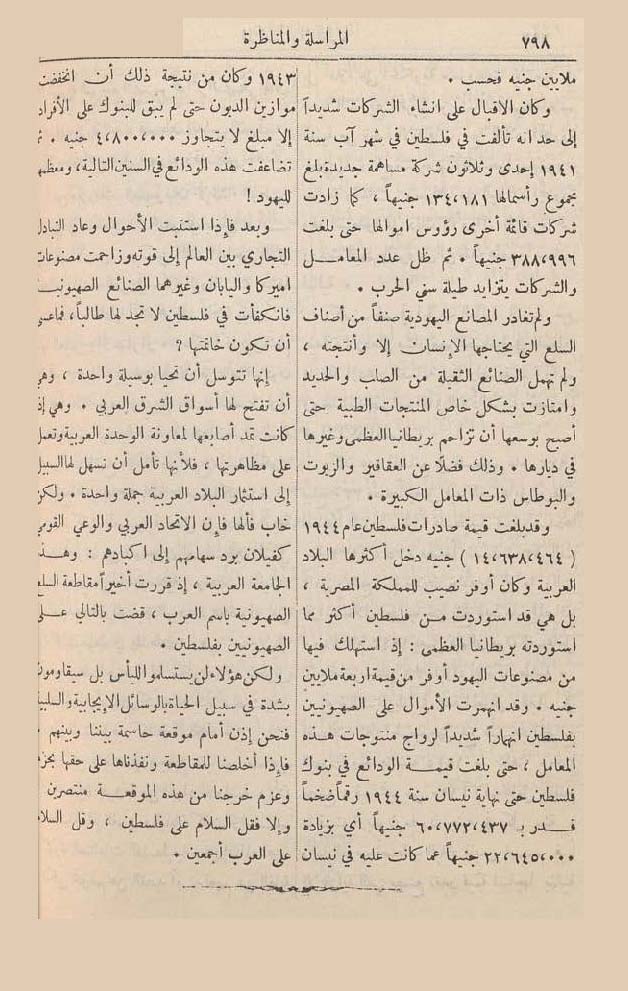 ٧٩٨
المراسلة والمناظرة
ملايين جنيه فحسب .
وكان الاقبال على انشاء الشركات شديداً
إلى حد انه تألفت في فلسطين في شهر آب سنة
١٩٤١ إحدى وثلاثون شركة مساهمة جديدة بلغ
مجموع رأسمالها ١٣٤،١٨١ جنيهاً ، كما زادت
شركات قائمة أخرى رؤوس اموالها حتى بلغت
٣٨٨،٩٩٦ جنيهاً . ثم ظل عدد المعامل
والشركات يتزايد طيلة سني الحرب .
ولم تغادر المصانع اليهودية صنفاً من أصناف
السلع التي يحتاجها الإنسان إلا وأنتجته ،
ولم تهمل الصنائع الثقيلة من الصلب والحديد
وامتازت بشكل خاص المنتجات الطبية حتى
أصبح بوسعها أن تزاحم بريطانيا العظمى وغيرها
في ديارها . وذلك فضلاً عن العقاقير والزيوت
والبوطاس ذات المعامل الكبيرة .
وقد بلغت قيمة صادرات فلسطين عام ١٩٤٤
( ١٤،٦٣٨،٤٦٤ ) جنيه دخل أكثرها البلاد
العربية وكان أوفر نصيب للمملكة المصرية ،
بل هي قد استوردت من فلسطين أكثر مما
استوردته بريطانيا العظمى : إذ استهلك فيها
من مصنوعات اليهود أوفر من قيمة اربعة ملايين
جنيه . وقد انهمرت الأموال على الصهيونيين
بفلسطين انهماراً شديداً لرواج منتوجات هذه
المعامل ؛ حتى بلغت قيمة الودائع في بنوك
فلسطين حتى نهاية نيسان سنة ١٩٤٤ رقماً ضخماً
قدر بـ ٦٠،٧٧٢،٤٣٧ جنيهاً أي بزيادة
٢٢،٦٤٥،٠٠٠ جنيهاً عما كانت عليه في نيسان
١٩٤٣ وكان من نتيجة ذلك أن انخفضت
موازين الديون حتى لم يبق للبنوك على الأفراد
إلا مبلغ لا يتجاوز ٤،٨٠٠،٠٠٠ جنيه .
تضاعفت هذه الودائع في السنين التالية، ومعظمها
لليهود !
وبعد فإذا استتبت الأحوال وعاد التبادل
التجاري بين العالم إلى قوته وزاحمت مصنوعات
اميركا واليابان وغيرهما الصنائع الصهيونية
فانكفأت في فلسطين لا تجد لها طالباً، فما عسى
أن تكون خاتمتها ؟
إنها تتوسل أن تحيا بوسيلة واحدة ، وهي
أن تفتح لها أسواق الشرق العربي . وهي إذ
كانت تمد أصابعها لمعاونة الوحدة العربية وتعمل
على مظاهرتها ، فلأنها تأمل أن تسهل لها السبيل
إلى استثمار البلاد العربية جملة واحدة . ولكن
خاب فألها فإن الاتحاد العربي والوعي القومي
كفيلان برد سهامهم إلى اكبادهم : وهذه
الجامعة العربية ، إذ قررت أخيراً مقاطعة السلع
الصهيونية باسم العرب ، قضت بالتالي على
الصهيونيين بفلسطين .
ولكن هؤلاء لن يستسلموا لليأس بل سيقاومون
بشدة في سبيل الحياة بالرسائل الإيجابية والسلبية
فنحن إذن أمام موقعة حاسمة بيننا وبينهم ،
فإذا أخلصنا للمقاطعة ونفذناها على حقها بحزم
وعزم خرجنا من هذه الموقعة منتصرين
وإلا فقل السلام على فلسطين ، وقل السلام
على العرب أجمعين .